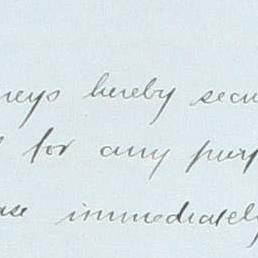 neys hereby secu
for any purp
ase immediately